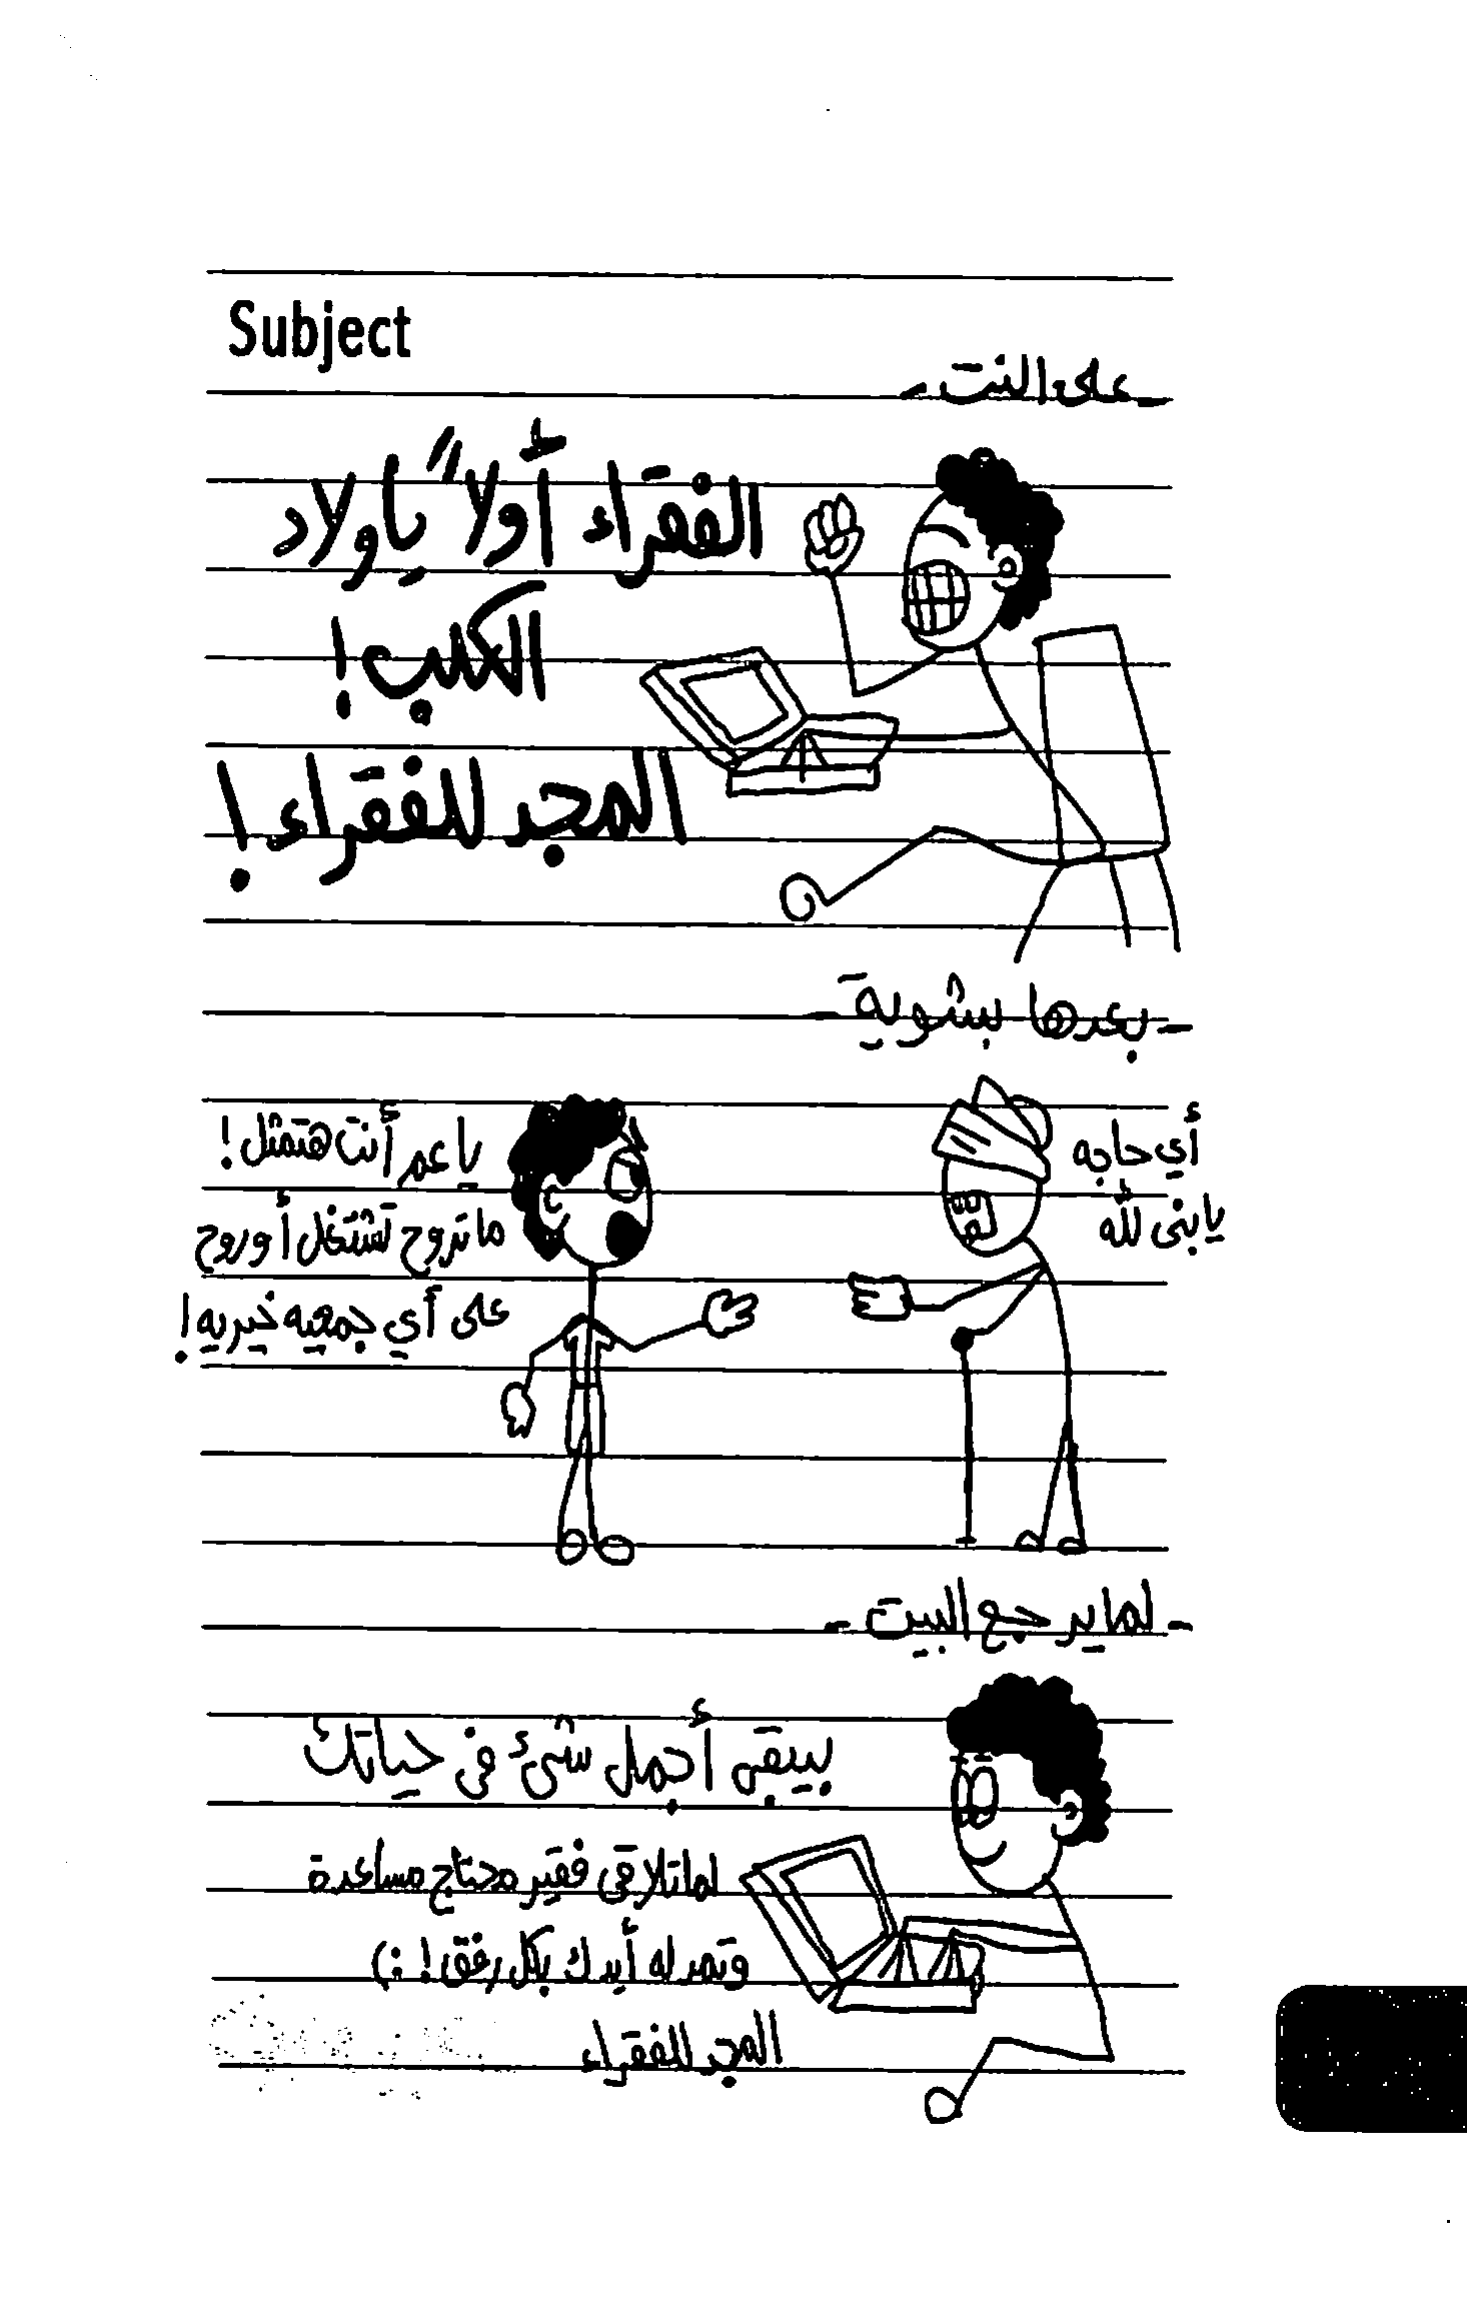 Subject
-على النت-
الفقراء أولاً ياولاد
الكلب!
المجد للفقراء!
-بعدها بشوية-
أي حاجه
يابنى لله
ياعم أنت هتمثل!
ماتروح تشتغل أو روح
على أي جمعيه خيريه!
-لما يرجع البيت-
بيبقى أجمل شئ فى حياتك
لما تلاقى فقير محتاج مساعدة
وتمد له أيدك بكل رفق! :)
المجد للفقراء